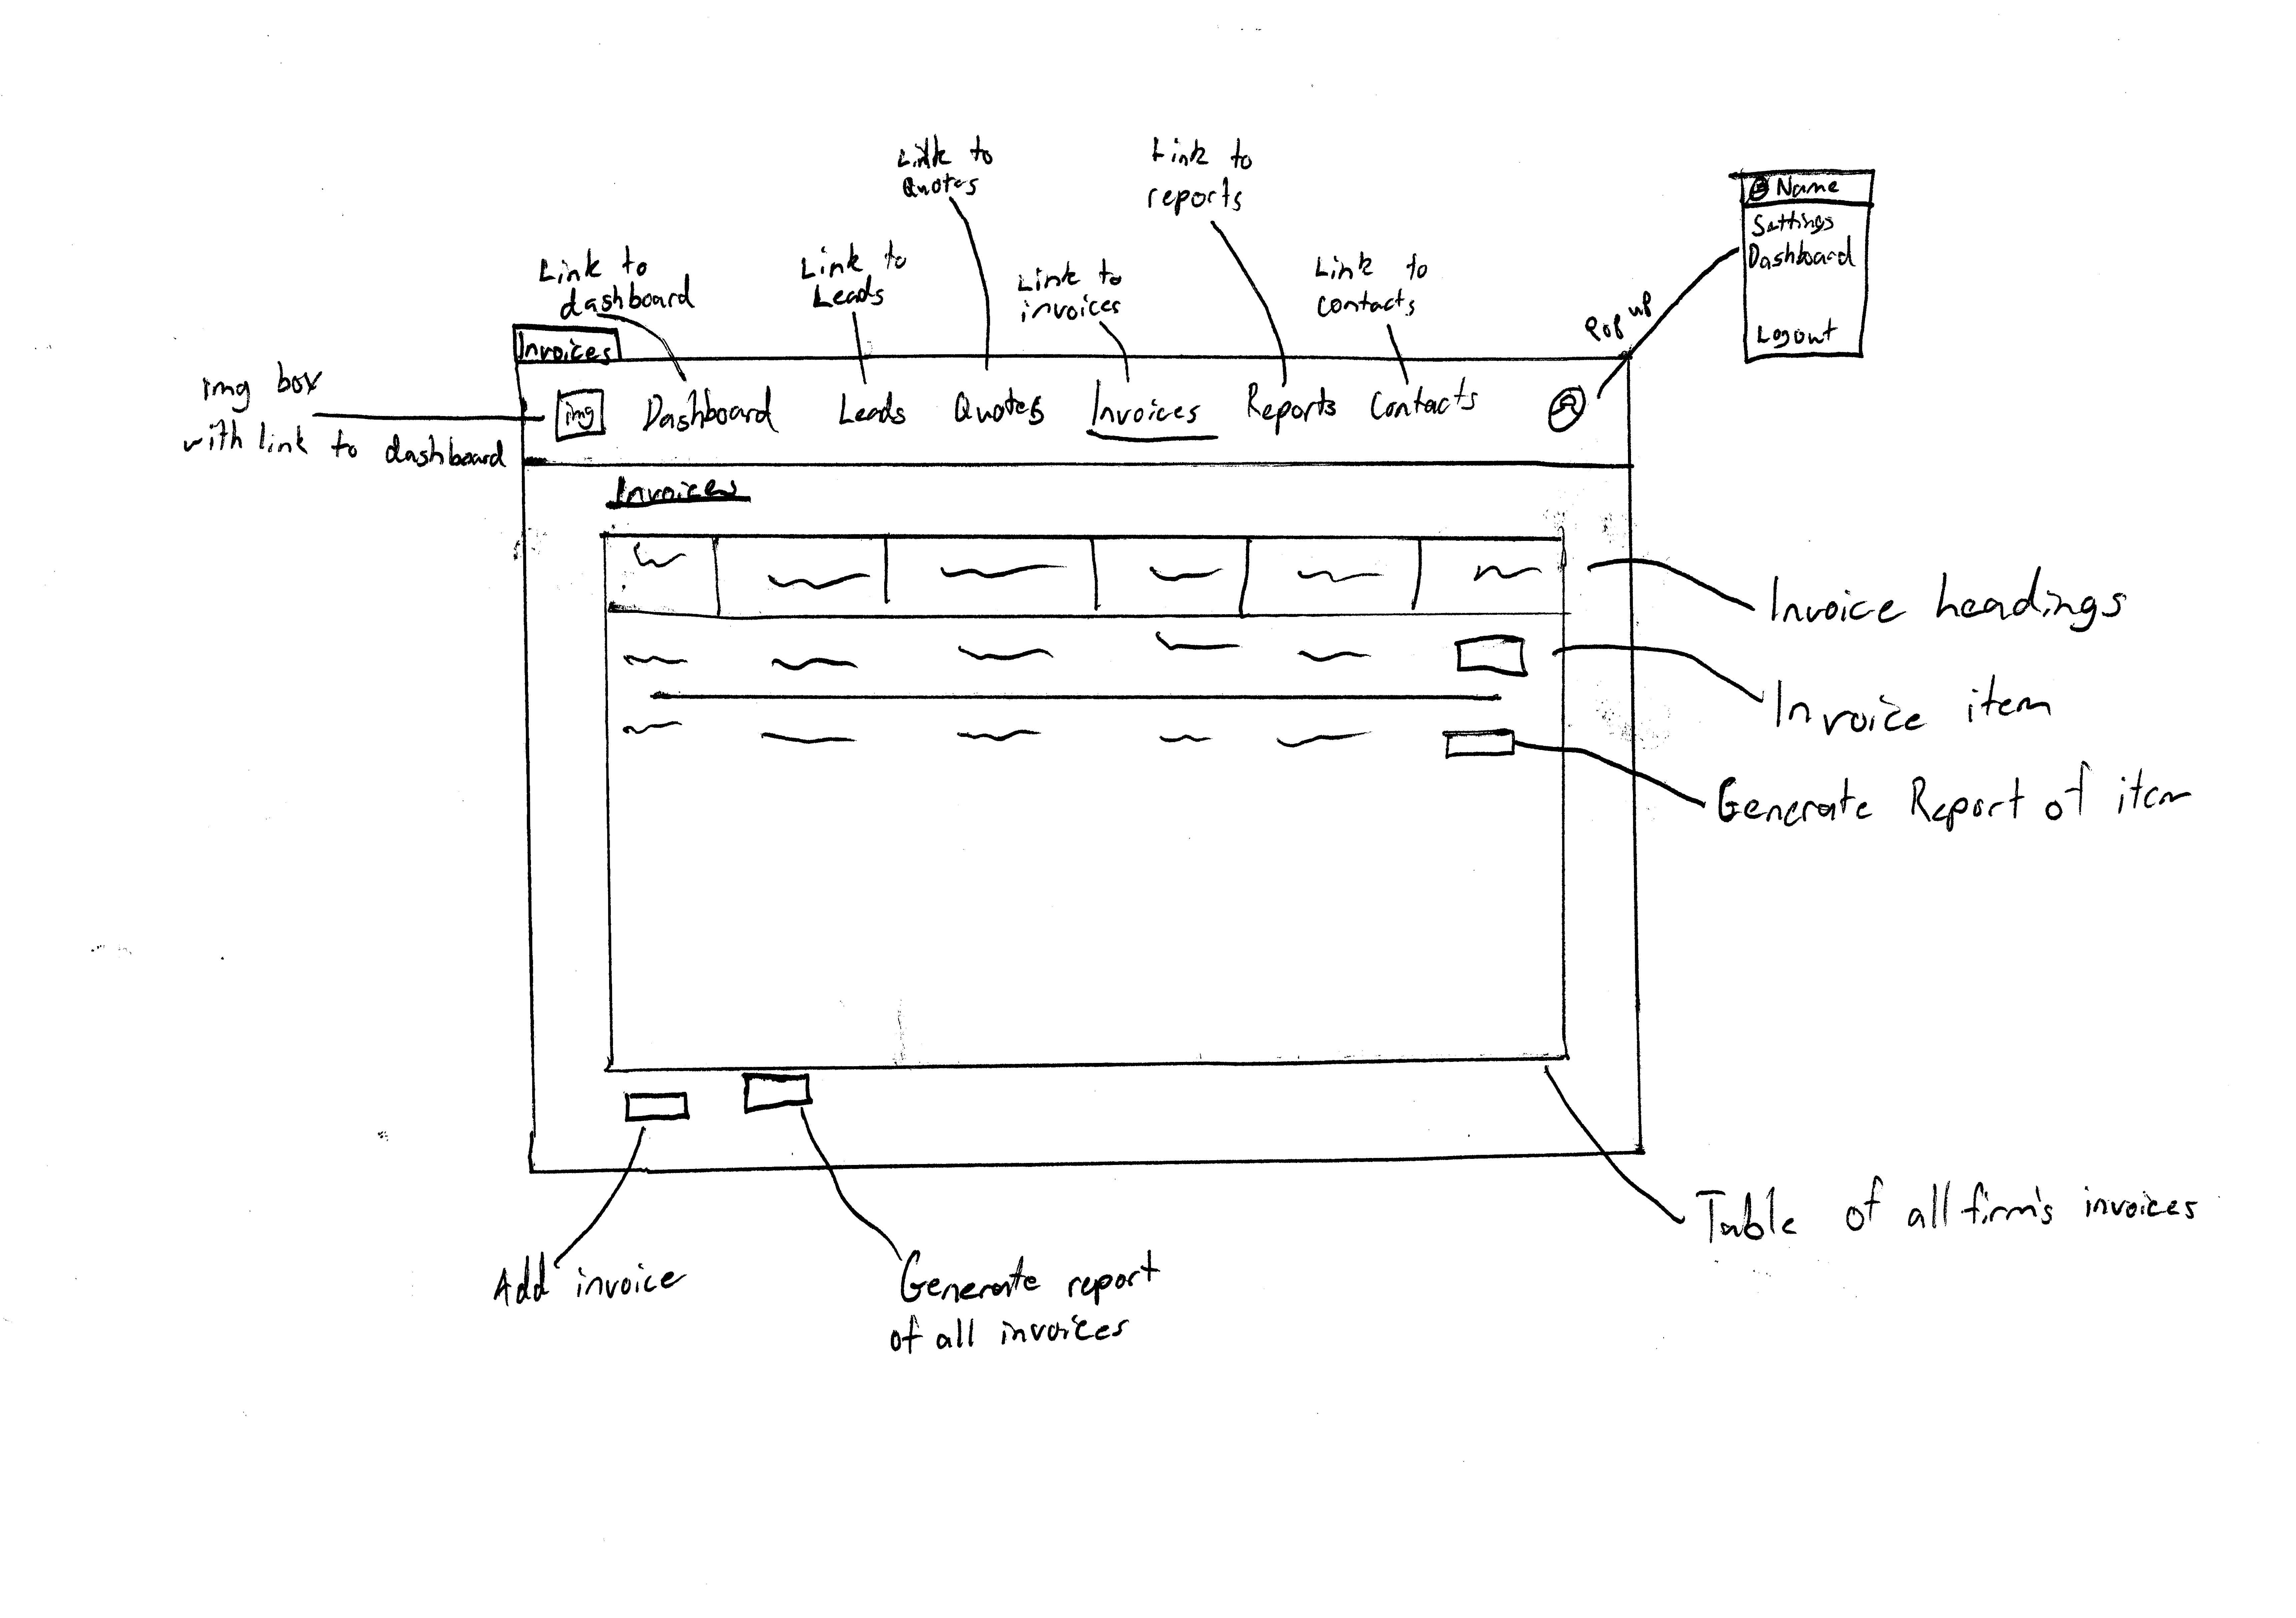 Link to
Quotes
Link to
reports
Name
Settings
Dashboard
Logout
Link to
dashboard
Link to
Leads
Link to
invoices
Link to
contacts
Pop up
Invoices
img box
with link to dashboard
img
Dashboard
Leads
Quotes
Invoices
Reports
Contacts
Invoices
Invoice headings
Invoice item
Generate Report of item
Table of all firm's invoices
Add invoice
Generate report
of all invoices